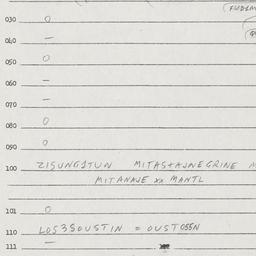 030 O
040 —
050 O
060 —
070 —
080 O
090 O
100 ZISUNGSTUN MITASTAJNEGRINE
MITANAJE xx MANTL
101 O
110 LOS3SOUSTIN = OUSTOSSN
111 —